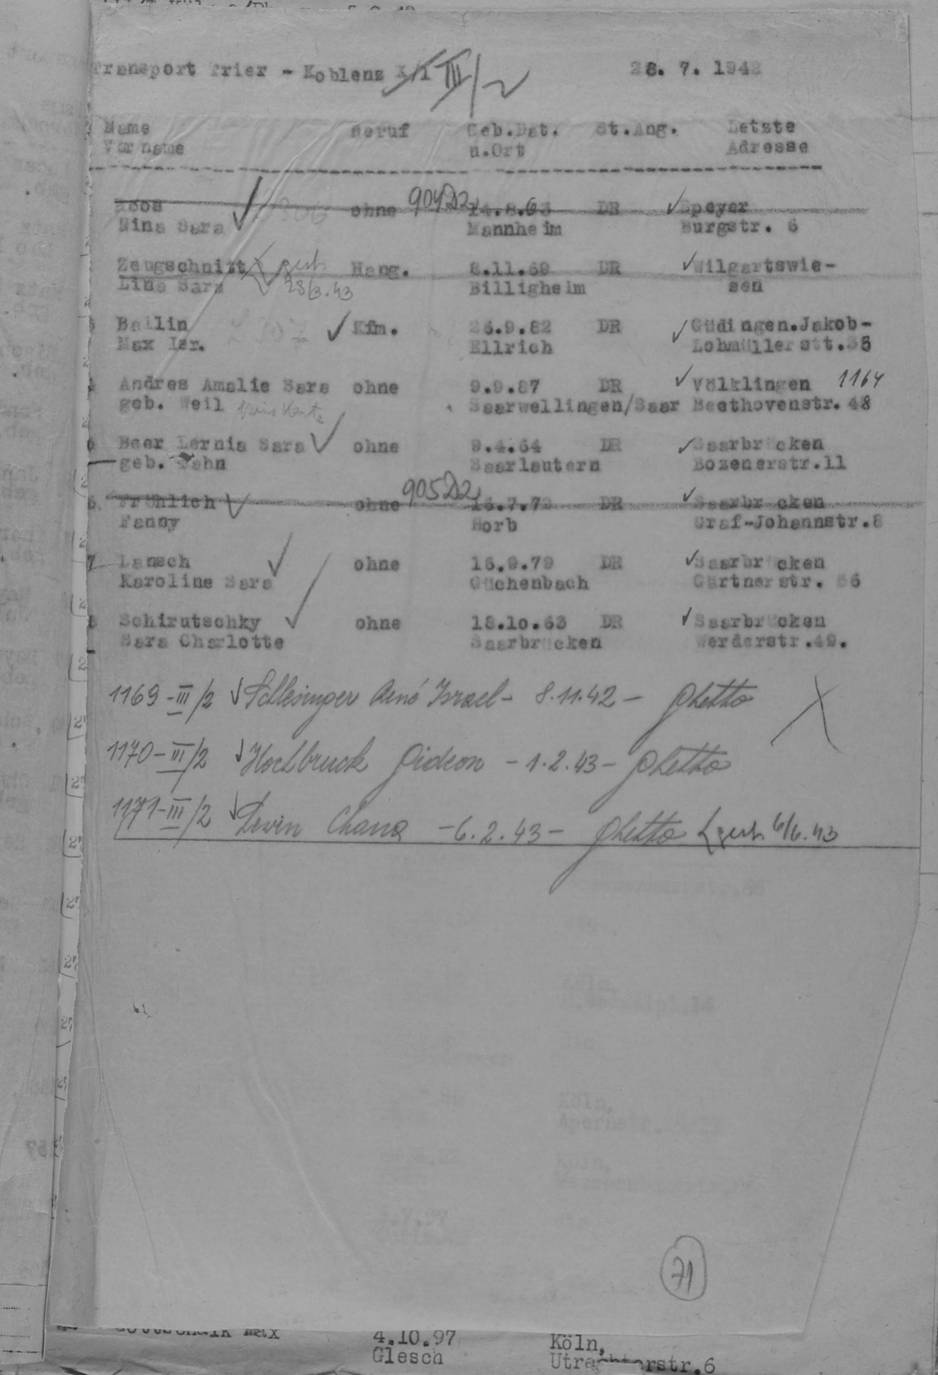 Transport Trier - Koblenz III/2 28. 7. 1942
Name Beruf Geb.Dat. St.Ang. Letzte
Vorname u.Ort Adresse
ohne 904D2 14.8.63 DR Speyer
Nina Sara Mannheim Burgstr. 6
Zeugschnitt gest. Hang. 8.11.69 DR Wilgartswie-
Line Sara 28/3.43 Billigheim sen
Ballin Kfm. 26.9.82 DR Güdingen.Jakob-
Max Isr. Ellrich Lohmüllerstt.35
Andres Amalie Sara ohne 9.9.87 DR Völklingen 1164
geb. Weil Saarwellingen/Saar Beethovenstr. 48
Beer Lernia Sara ohne 9.4.64 DR Saarbrücken
geb. Saarlautern Bozenerstr.11
6. Fröhlich ohne 905D2 DR Saarbrücken
Fanny Horb Graf-Johannstr.8
7 Lansch ohne 16.9.79 DR Saarbrücken
Karoline Sara Güchenbach Gärtnerstr.
8 Schirutschky ohne 18.10.63 DR Saarbrücken
Sara Charlotte Saarbrücken Werderstr.49.
1169-III/2 Schlesinger Arnó Israel - 8.11.42 - Ghetto
1170-III/2 Hochbruck Gideon - 1.2.43 - Ghetto
1171-III/2 Levin Chana - 6.2.43 - Ghetto gest. 6/6.43
71
Gottschalk Max 4.10.97 Köln,
Glesch Utrechterstr.6